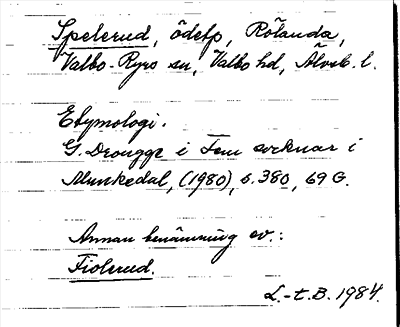 Spelerud, ödetp, Rölanda,
Valbo-Ryrs sn, Valbo hd, Älvsb. l.
Etymologi.
G. Drougge i Fem socknar i
Munkedal, (1980), s. 380, 69 G.
Annan benämning ev.:
Fiolerud.
L.-t. B. 1984.